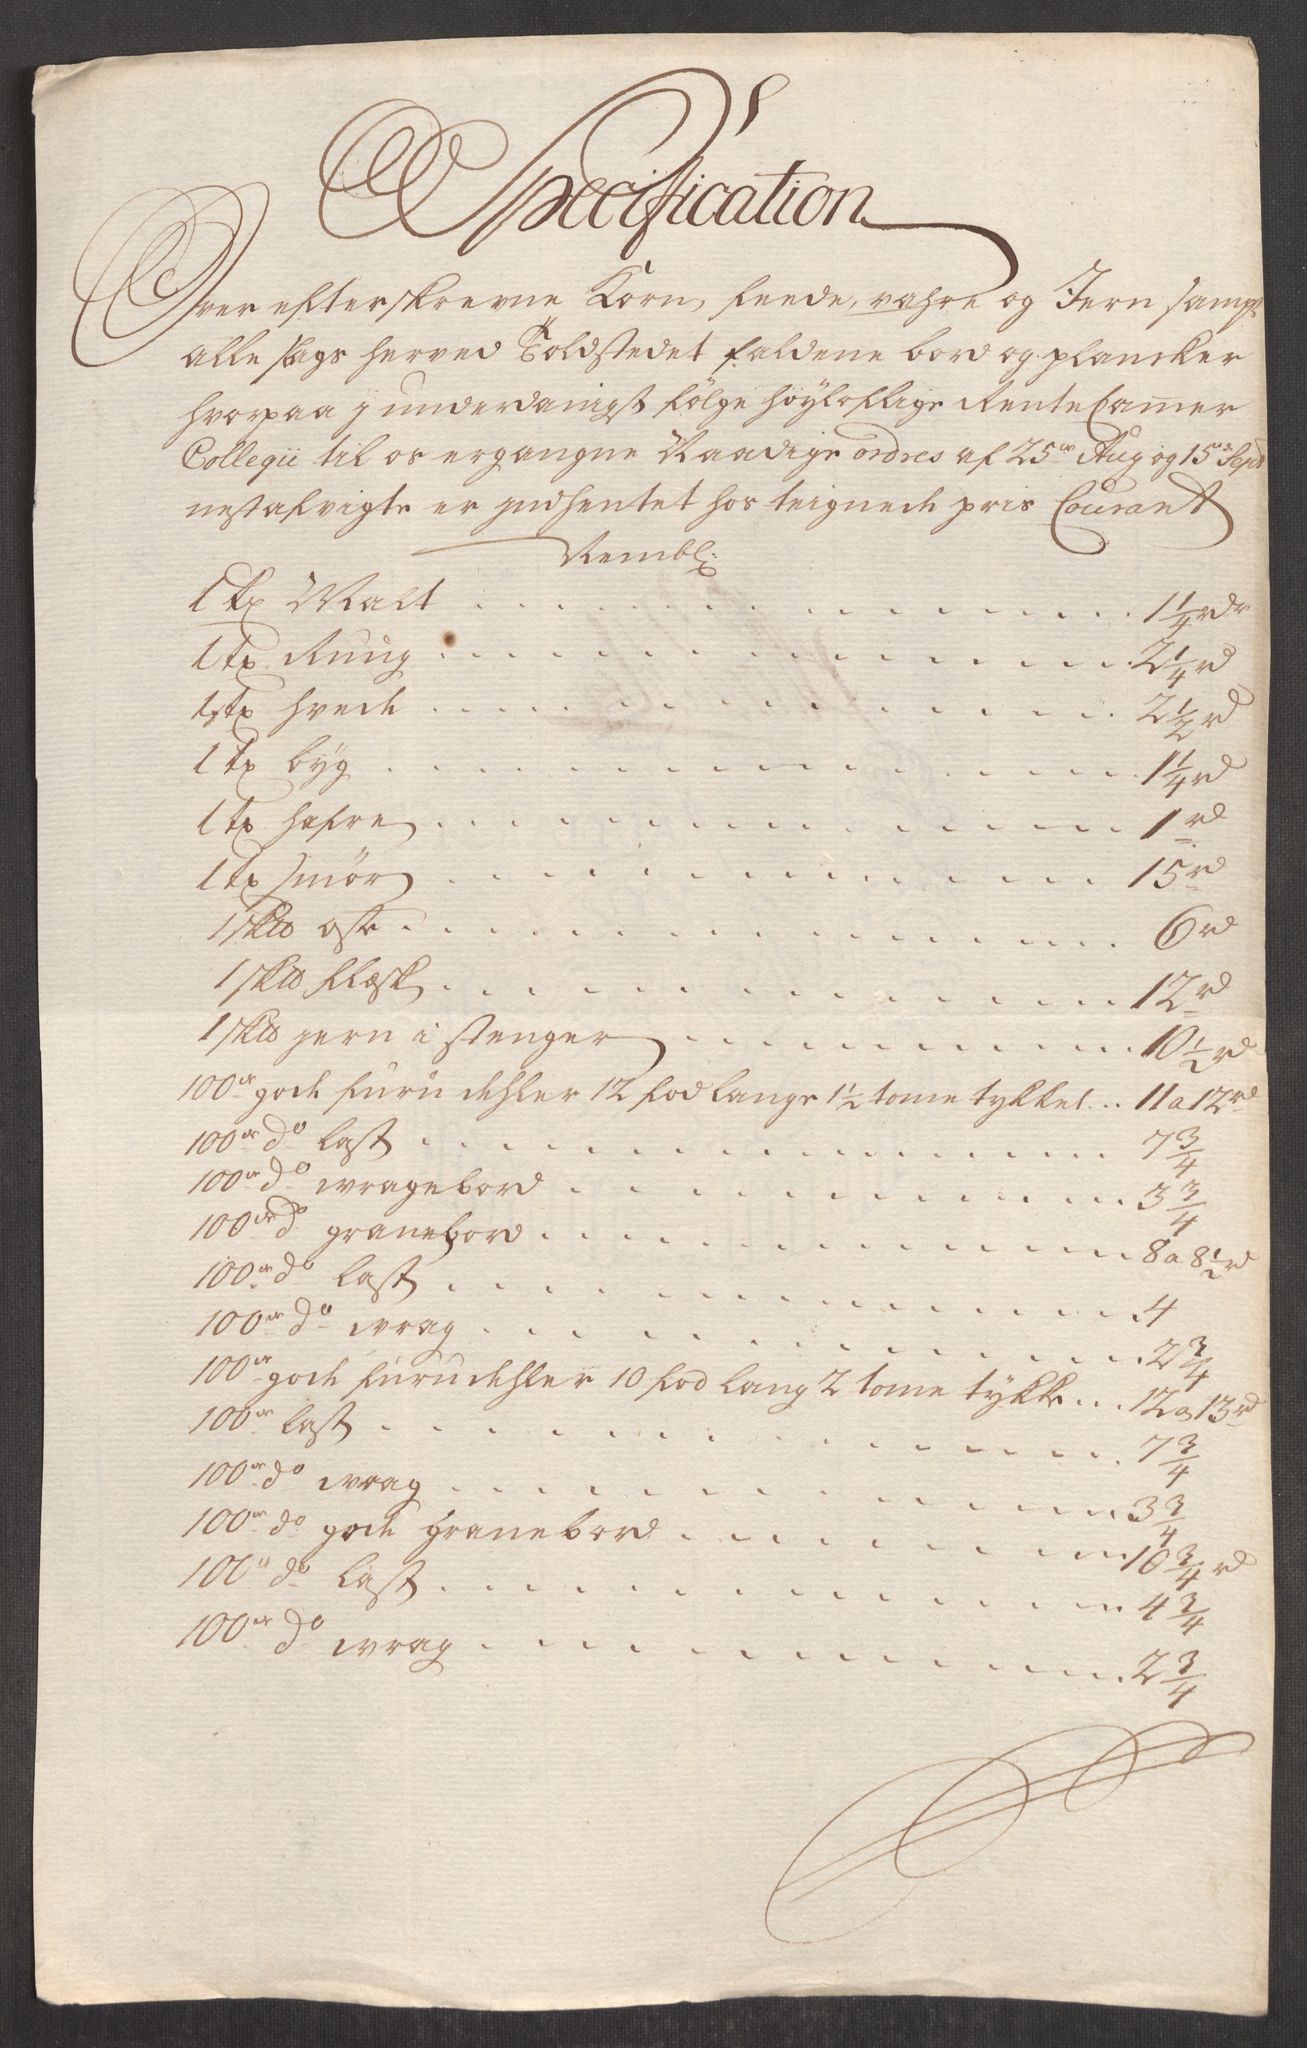 Specification
Over efterskrevne Korn, feede, vahre og Jern sampt
alle slags herved Toldstedet faldene bord og plancker
hvorpaa j underdanigst fölge höyloflige Rente Camer
Collegii til os ergangne Naadige ordres af 25de Aug og 15de Sept
nestafvigte er indhentet hos teignede pris Courant
Nembl:
1 tø Malt . . . 1 1/4 rdr
1 tø Rung . . . 2 1/4 rd
1 tø hvede . . . 2 1/2 rd
1 tø byg . . . 1 1/4 rd
1 tø hafre . . . 1 rd
1 tø smör . . . 15 rd
1 sk℔ oste . . . 6 rd
1 sk℔ flæsk . . . 12 rd
1 sk℔ jern i stenger . . . 10 1/2 rd
100de gode furu dehler 12 fod lange 1 1/2 tome tykke . . . 11 a 12 rd
100de do last . . . 7 3/4
100de do wragebord . . . 3 3/4
100de do granebord . . . 8 a 8 1/2 rd
100de do last . . . 4
100de do wrag . . . 2 3/4
100de gode furu dehler 10 fod lang 2 tome tykke . . . 12 a 13 rd
100de last . . . 7 3/4
100de do wrag . . . 3 3/4
100de do gode granebord . . . 10 3/4 rd
100de do last . . . 4 3/4
100de do wrag . . . 2 3/4